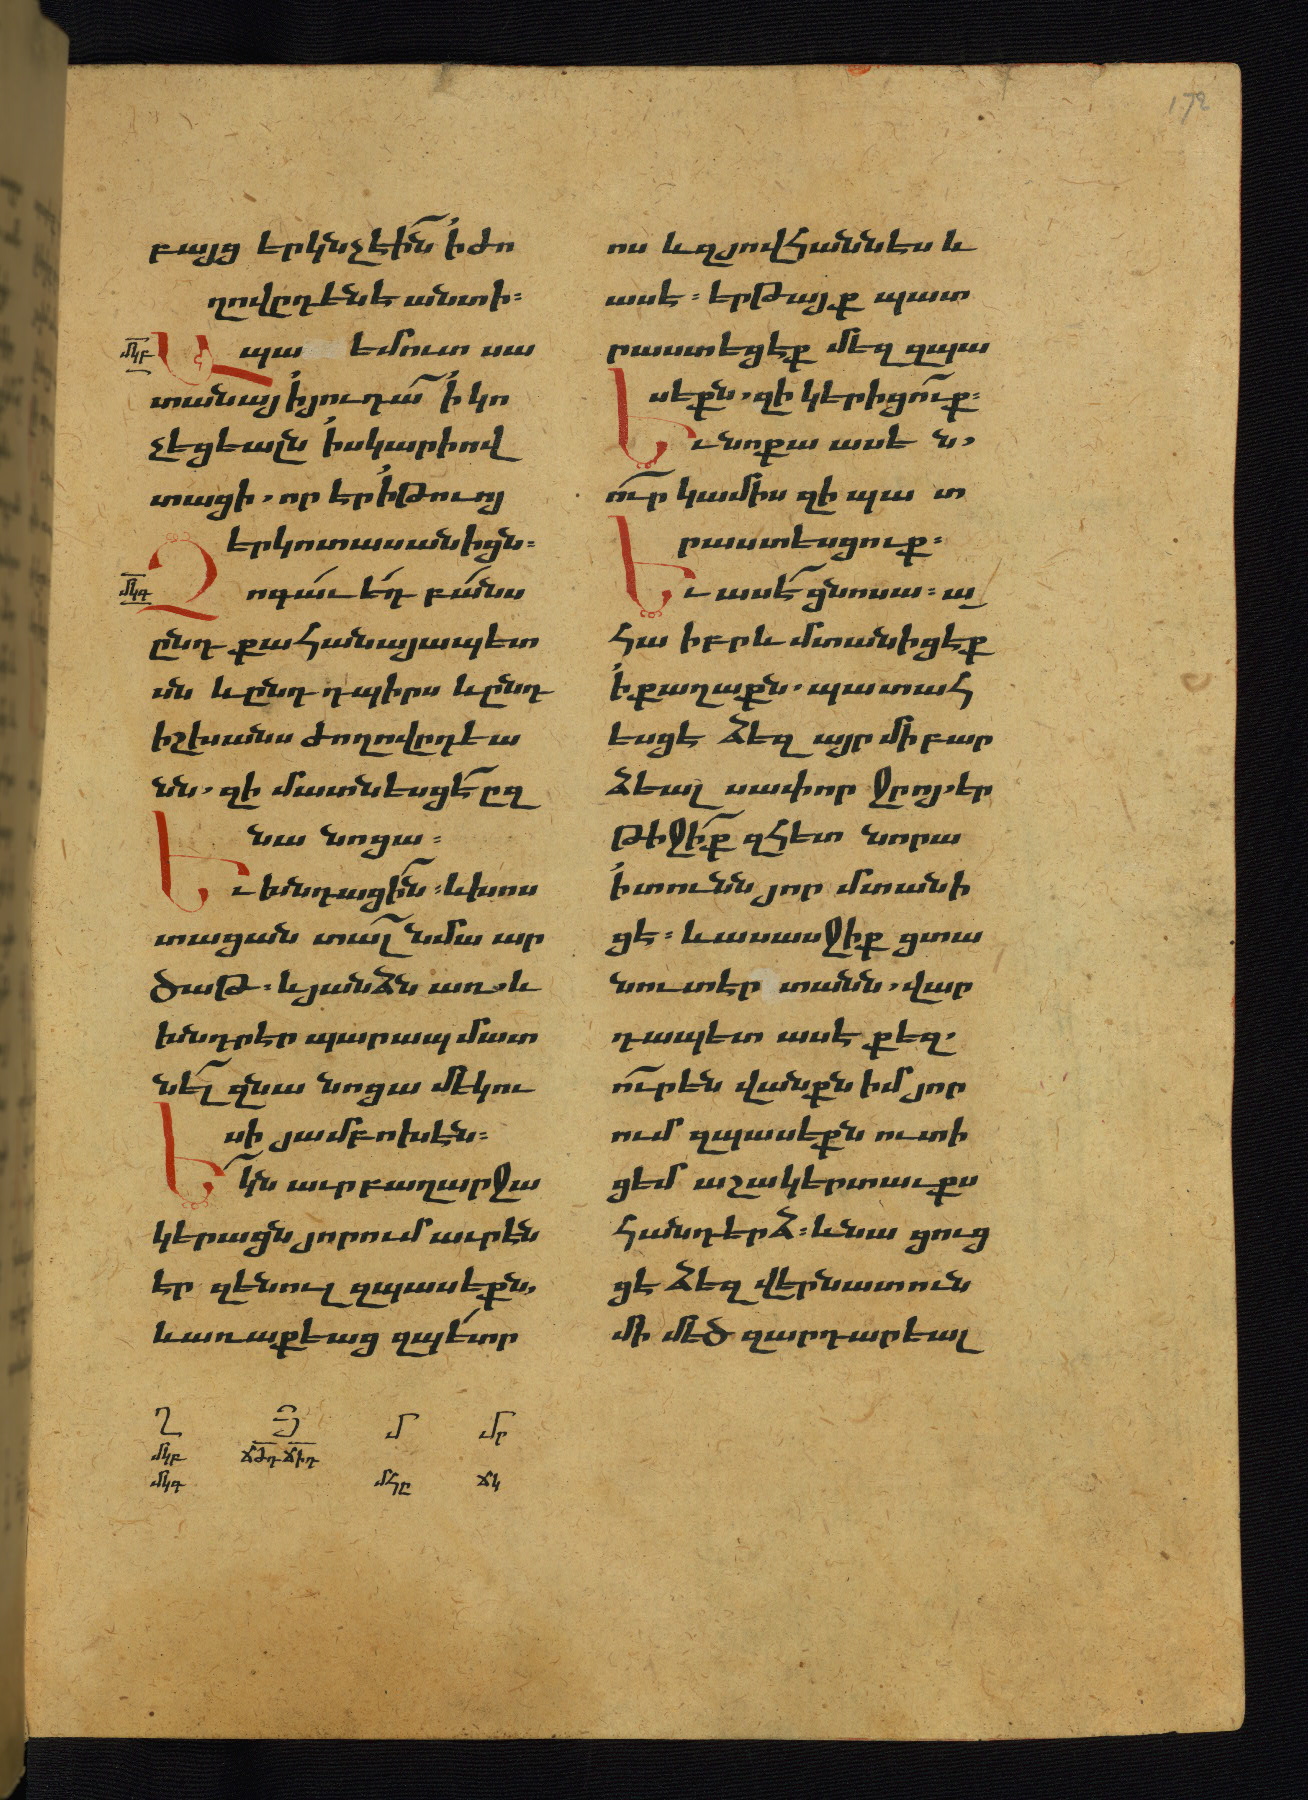 172
բայց երկնչէի՟ն ի՛ ժո
ղովըրդենէ անտի։
մկբ
Ապա եմուտ սա
տանայ ի՛ յուդա՟ ի՛ կո
չեցեալն ի՛սկարիով
տացի, որ էր ի՛ թուոյ
երկոտասանիցն։
մկգ
Չոգաւ ե՛դ բանս
ընդ քահանայապետ
սն և ընդ դպիրս և ընդ
իշխանս ժողովըրդեա
նն, զի մատնեսցէ՟ ըզ
նա նոցա։
Եւ խնդացի՟ն։ և խոս
տացան տա՟լ նմա ար
ծաթ։ և յանձն առ, և
խնդրէր պարապ մատ
նե՟լ զնա նոցա մեկու
սի յամբոխեն։
Եկ՟ն աւր բաղարջա
կերացն յորում աւրէն
էր զենուլ զպասեքն,
և առաքեաց զպետր
ոս և զյովհաննես և
ասէ։ երթայք պատ
րաստեցեք մեզ զպա
սեքն, զի կերիցու՟ք։
Եւ նոքա ասեն,
ու՟ր կամիս զի պատ
րաստեսցուք։
Եւ ասէ՟ ցնոսա։ ա
հա իբրև մտանիցեք
ի՛ քաղաքն, պատահ
եսցէ ձեզ այր մի բար
ձեալ սափոր ջրոյ, եր
թիջի՟ք զհետ նորա
ի՛ տունն յոր մտանի
ցէ։ և ասասջիք ցտա
նուտէր տանն, վար
դապետ ասէ քեզ,
ու՟ր են վանքն իմ յոր
ում զպասեքն ուտի
ցեմ աշակերտաւքս
հանդերձ։ և նա ցուց
ցէ ձեզ վերնատուն
մի մեծ զարդարեալ
Ղ Յ մ մր
մկբ ճժդ ճիդ
մկգ մհը ճկ